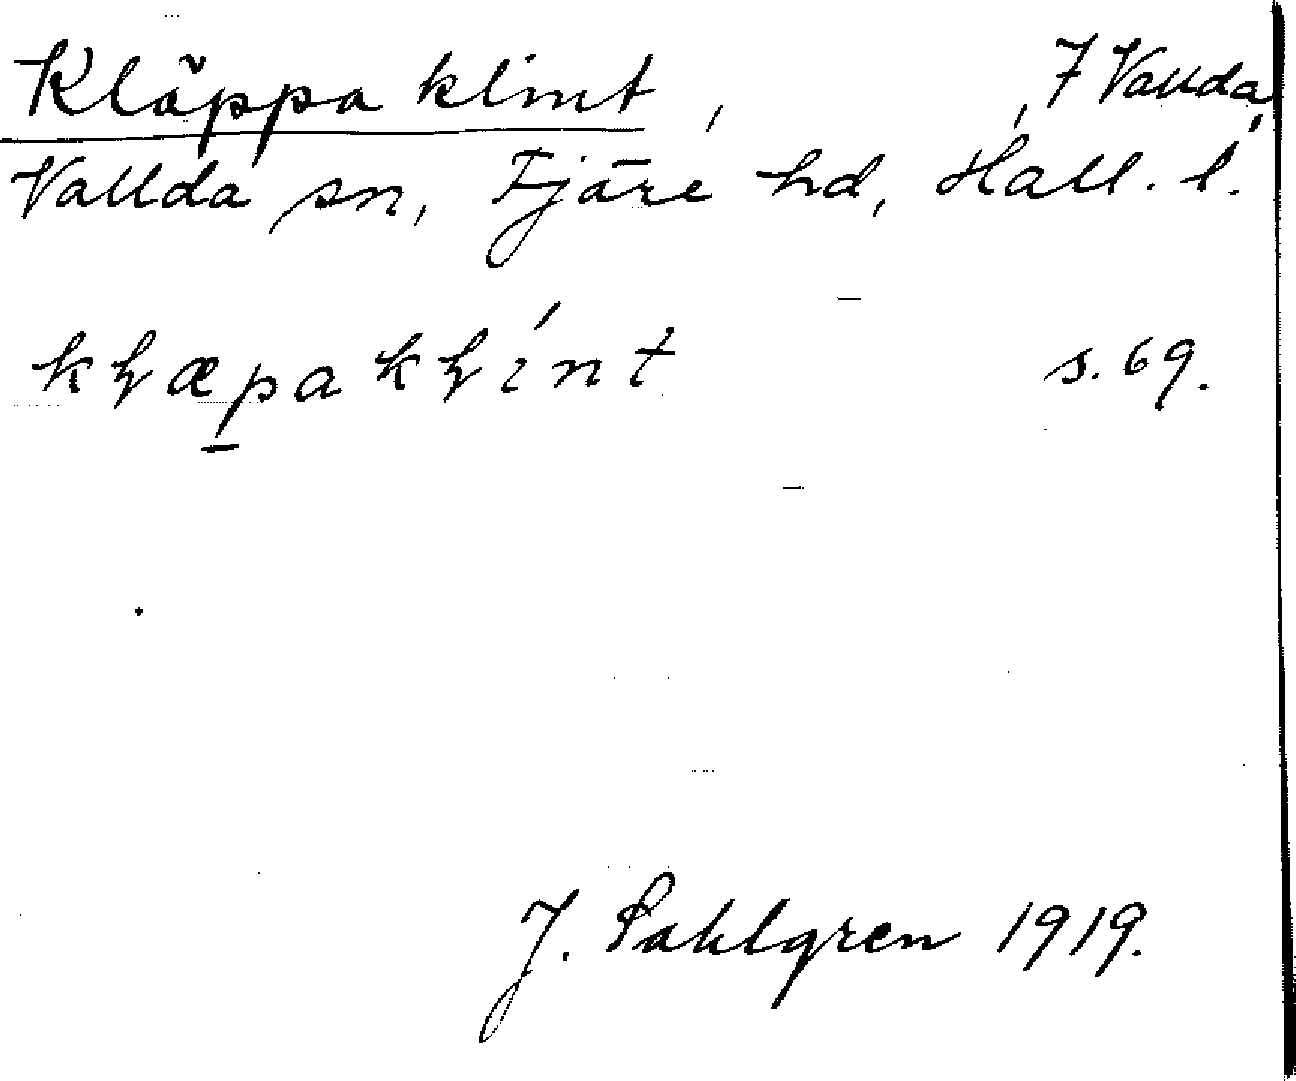 Kläppa klint, , 7 Vallda,
Vallda sn, Fjäre hd, Hall. l.
kɫæpakɫínt s. 69.
J. Sahlgren 1919.